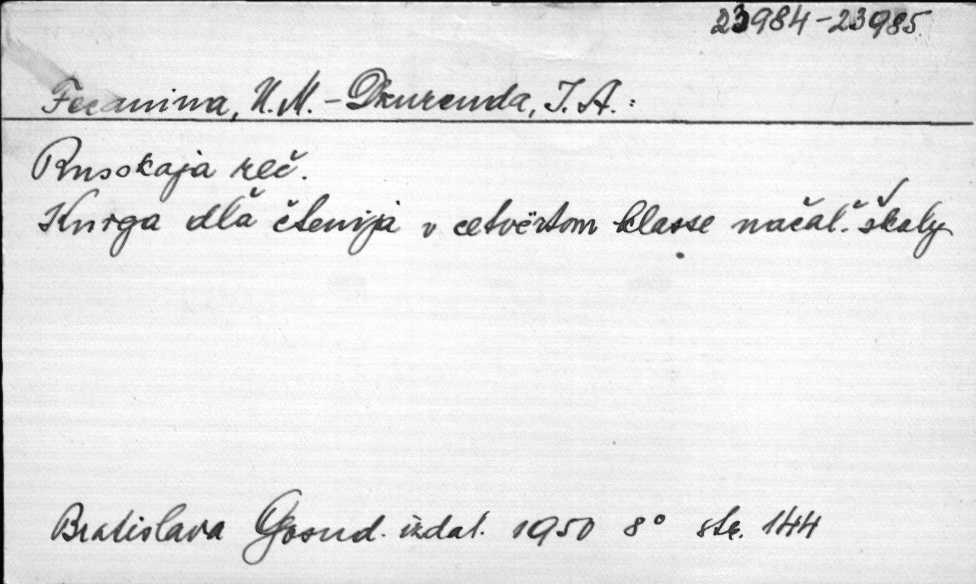 23984-23985
Fecanina, N. M. - Dzurenda, I. A.:
Russkaja reč.
Kniga dlă čtenija v cetvërtom klasse načal. školy
Bratislava Gosud. izdat. 1950 8° str. 144